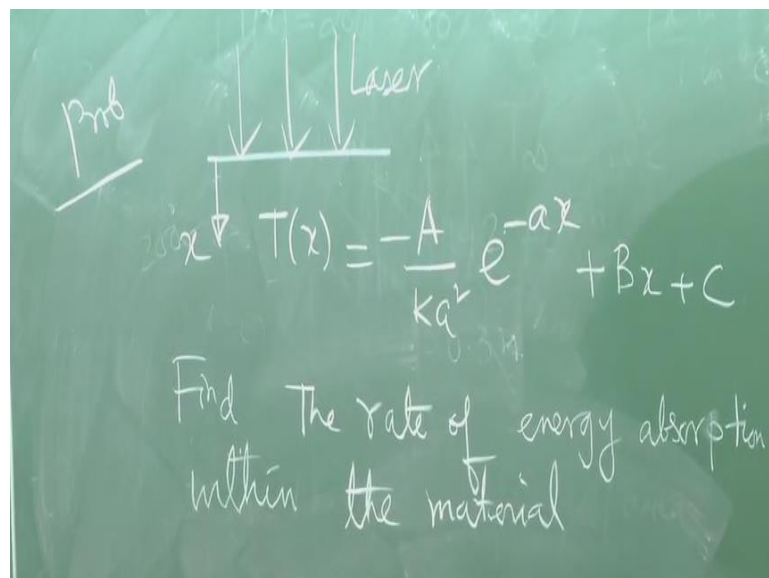 Laser
Prob
x T(x) = -A/ka² e^-ax + Bx + C
Find The rate of energy absorption
within the material